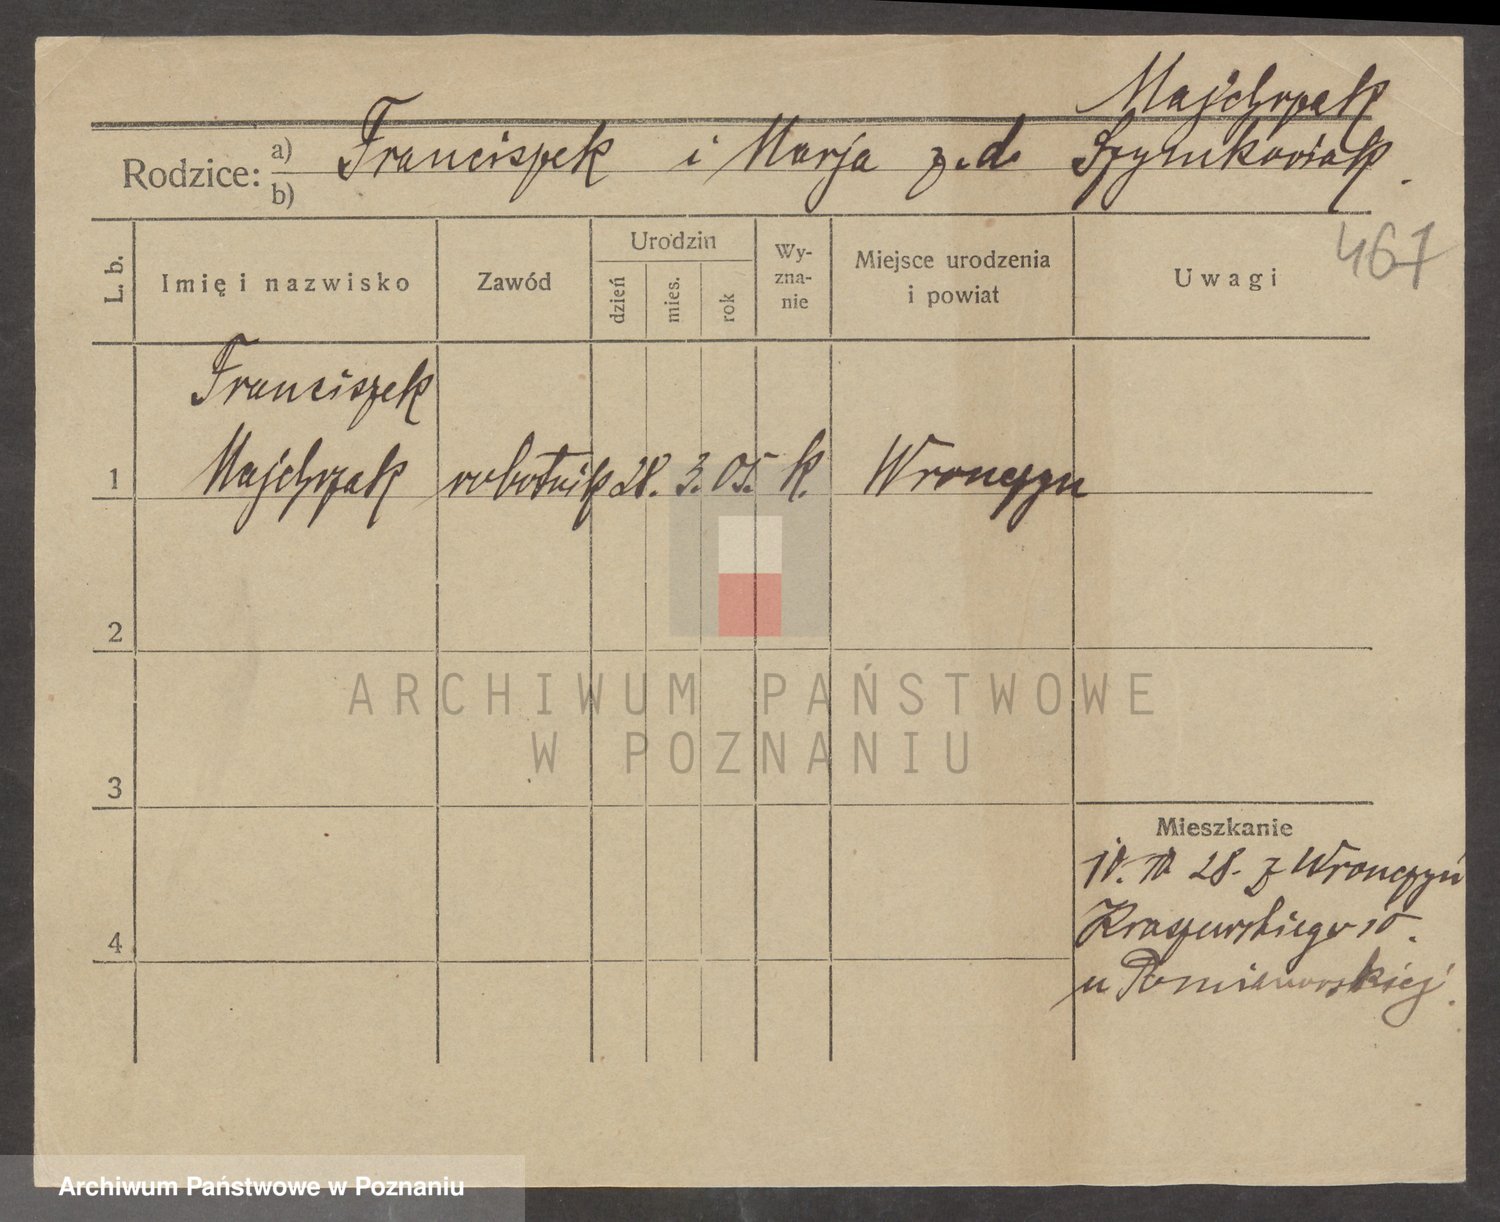 Majchrzak
Rodzice: a) b) Franciszek i Marja z. d. Szymkowiak.
467
L. b.
Imię i nazwisko
Zawód
Urodzin
dzień
mies.
rok
Wy-
zna-
nie
Miejsce urodzenia
i powiat
Uwagi
Franciszek
1 Majchrzak robotnik 28. 3. 05. k. Wronczyn
2
ARCHIWUM PAŃSTWOWE
W POZNANIU
3
Mieszkanie
10. 10 28. z Wronczyn
Kraszewskiego 10.
4
u
Archiwum Państwowe w Poznaniu